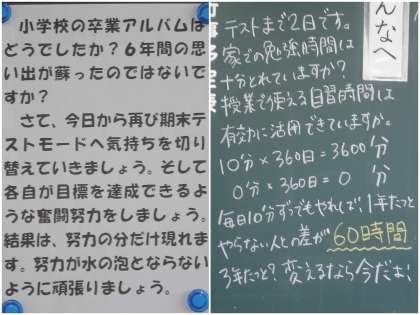 小学校の卒業アルバムは
どうでしたか?6年間の思
い出が蘇ったのではないで
すか?
さて、今日から再び期末テ
ストモードへ気持ちを切り
替えていきましょう。そして
各自が目標を達成できるよ
うな奮闘努力をしましょう。
結果は、努力の分だけ現れま
す。努力が水の泡とならない
ように頑張りましょう。
んなへ
テストまで2日です。
家での勉強時間は
十分とれていますか?
授業で使える自習時間は
有効に活用できていますか。
10分×360日=3600分
0分×360日=0分
毎日10分ずつでもやれば、1年たつと
やらない人と差が60時間
3年たつと?変えるなら今だよ!